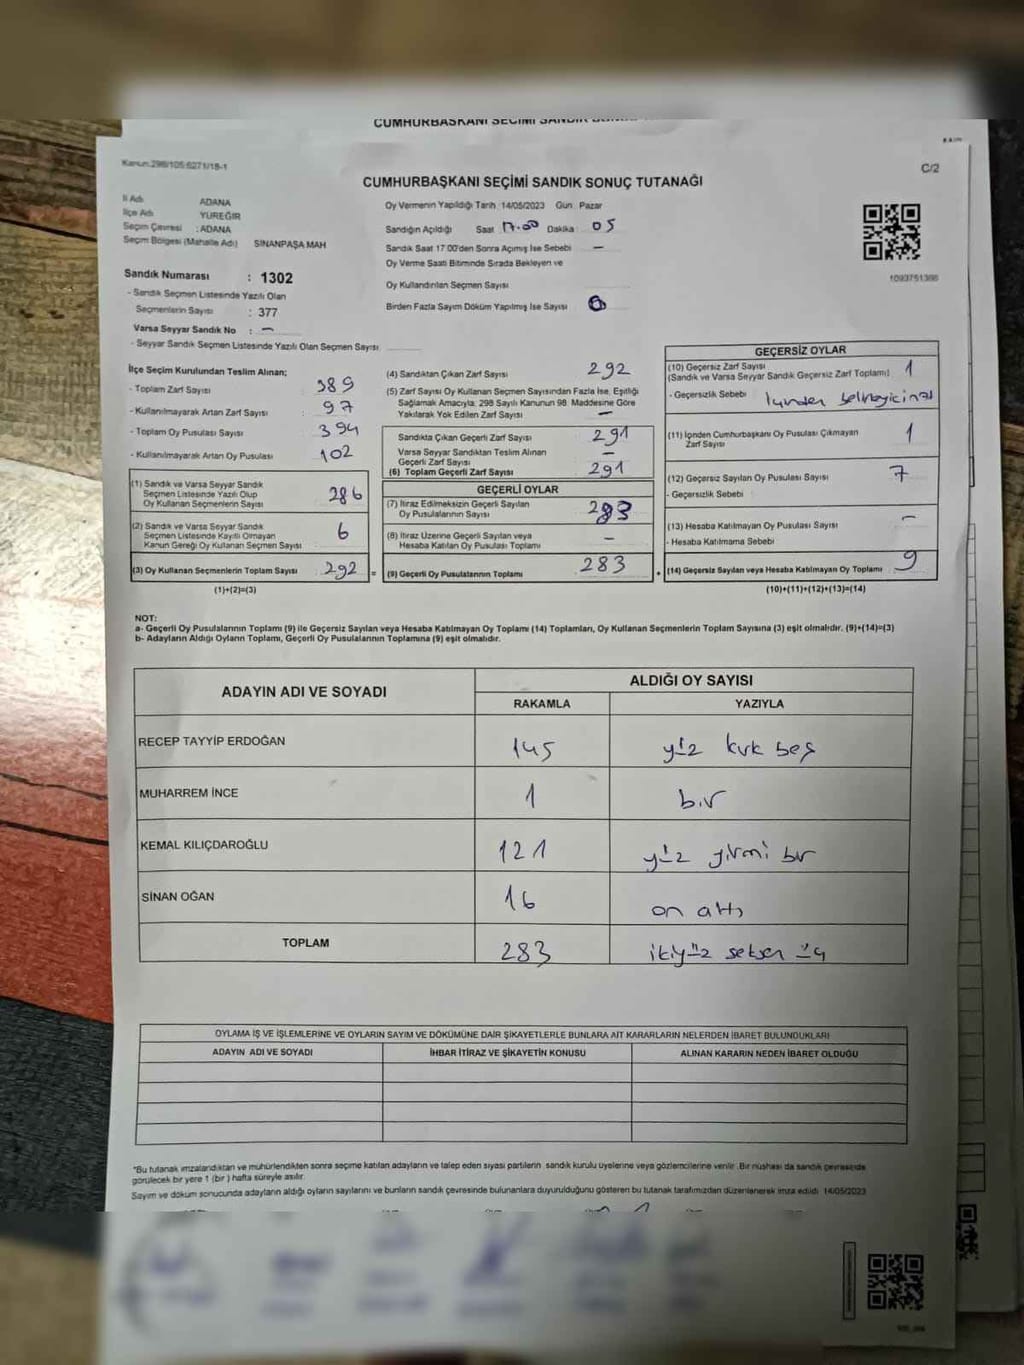 CUMHURBAŞKANI SEÇİMİ SANDIK
Kanun:298/105;6271/18-1
C/2
CUMHURBAŞKANI SEÇİMİ SANDIK SONUÇ TUTANAĞI
İl Adı ADANA
İlçe Adı YÜREĞİR
Seçim Çevresi : ADANA
Seçim Bölgesi (Mahalle Adı) SİNANPAŞA MAH
Sandık Numarası : 1302
- Sandık Seçmen Listesinde Yazılı Olan
Seçmenlerin Sayısı : 377
Varsa Seyyar Sandık No : –
- Seyyar Sandık Seçmen Listesinde Yazılı Olan Seçmen Sayısı
Oy Vermenin Yapıldığı Tarih :14/05/2023 Gün Pazar
Sandığın Açıldığı Saat 17.00 Dakika : 05
Sandık Saat 17:00'den Sonra Açımış İse Sebebi –
Oy Verme Saati Bitiminde Sırada Bekleyen ve
Oy Kullandırılan Seçmen Sayısı
Birden Fazla Sayım Döküm Yapılmış İse Sayısı 0
1093751386
İlçe Seçim Kurulundan Teslim Alınan;
- Toplam Zarf Sayısı : 389
- Kullanılmayarak Artan Zarf Sayısı : 97
- Toplam Oy Pusulası Sayısı : 394
- Kullanılmayarak Artan Oy Pusulası : 102
(1) Sandık ve Varsa Seyyar Sandık
Seçmen Listesinde Yazılı Olup
Oy Kullanan Seçmenlerin Sayısı 286
(2) Sandık ve Varsa Seyyar Sandık
Seçmen Listesinde Kayıtlı Olmayan
Kanun Gereği Oy Kullanan Seçmen Sayısı 6
(3) Oy Kullanan Seçmenlerin Toplam Sayısı 292 =
(1)+(2)=(3)
(4) Sandıktan Çıkan Zarf Sayısı 292
(5) Zarf Sayısı Oy Kullanan Seçmen Sayısından Fazla İse, Eşitliği
Sağlamak Amacıyla; 298 Sayılı Kanunun 98. Maddesine Göre
Yakılarak Yok Edilen Zarf Sayısı –
Sandıkta Çıkan Geçerli Zarf Sayısı 291
Varsa Seyyar Sandıktan Teslim Alınan
Geçerli Zarf Sayısı –
(6) Toplam Geçerli Zarf Sayısı 291
GEÇERLİ OYLAR
(7) İtiraz Edilmeksizin Geçerli Sayılan
Oy Pusulalarının Sayısı 283
(8) İtiraz Üzerine Geçerli Sayılan veya
Hesaba Katılan Oy Pusulası Toplamı –
(9) Geçerli Oy Pusulalarının Toplamı 283 +
GEÇERSİZ OYLAR
(10) Geçersiz Zarf Sayısı 1
(Sandık ve Varsa Seyyar Sandık Geçersiz Zarf Toplamı)
- Geçersizlik Sebebi :
(11) İçinden Cumhurbaşkanı Oy Pusulası Çıkmayan
Zarf Sayısı 1
(12) Geçersiz Sayılan Oy Pusulası Sayısı 7
- Geçersizlik Sebebi :
(13) Hesaba Katılmayan Oy Pusulası Sayısı –
- Hesaba Katılmama Sebebi :
(14) Geçersiz Sayılan veya Hesaba Katılmayan Oy Toplamı 9
(10)+(11)+(12)+(13)=(14)
NOT:
a- Geçerli Oy Pusulalarının Toplamı (9) ile Geçersiz Sayılan veya Hesaba Katılmayan Oy Toplamı (14) Toplamları, Oy Kullanan Seçmenlerin Toplam Sayısına (3) eşit olmalıdır. (9)+(14)=(3)
b- Adayların Aldığı Oyların Toplamı, Geçerli Oy Pusulalarının Toplamına (9) eşit olmalıdır.
ADAYIN ADI VE SOYADI
ALDIĞI OY SAYISI
RAKAMLA YAZIYLA
RECEP TAYYİP ERDOĞAN 145 yüz kırk beş
MUHARREM İNCE 1 bir
KEMAL KILIÇDAROĞLU 121 yüz yirmi bir
SİNAN OĞAN 16 on altı
TOPLAM 283 ikiyüz seksen üç
OYLAMA İŞ VE İŞLEMLERİNE VE OYLARIN SAYIM VE DÖKÜMÜNE DAİR ŞİKAYETLERLE BUNLARA AİT KARARLARIN NELERDEN İBARET BULUNDUKLARI
ADAYIN ADI VE SOYADI İHBAR İTİRAZ VE ŞİKAYETİN KONUSU ALINAN KARARIN NEDEN İBARET OLDUĞU
*Bu tutanak imzalandıktan ve mühürlendikten sonra seçime katılan adayların ve talep eden siyasi partilerin sandık kurulu üyelerine veya gözlemcilerine verilir. Bir nüshası da sandık çevresinde
görülecek bir yere 1 (bir) hafta süreyle asılır.
Sayım ve döküm sonucunda adayların aldığı oyların sayılarını ve bunların sandık çevresinde bulunanlara duyurulduğunu gösteren bu tutanak tarafımızdan düzenlenerek imza edildi 14/05/2023